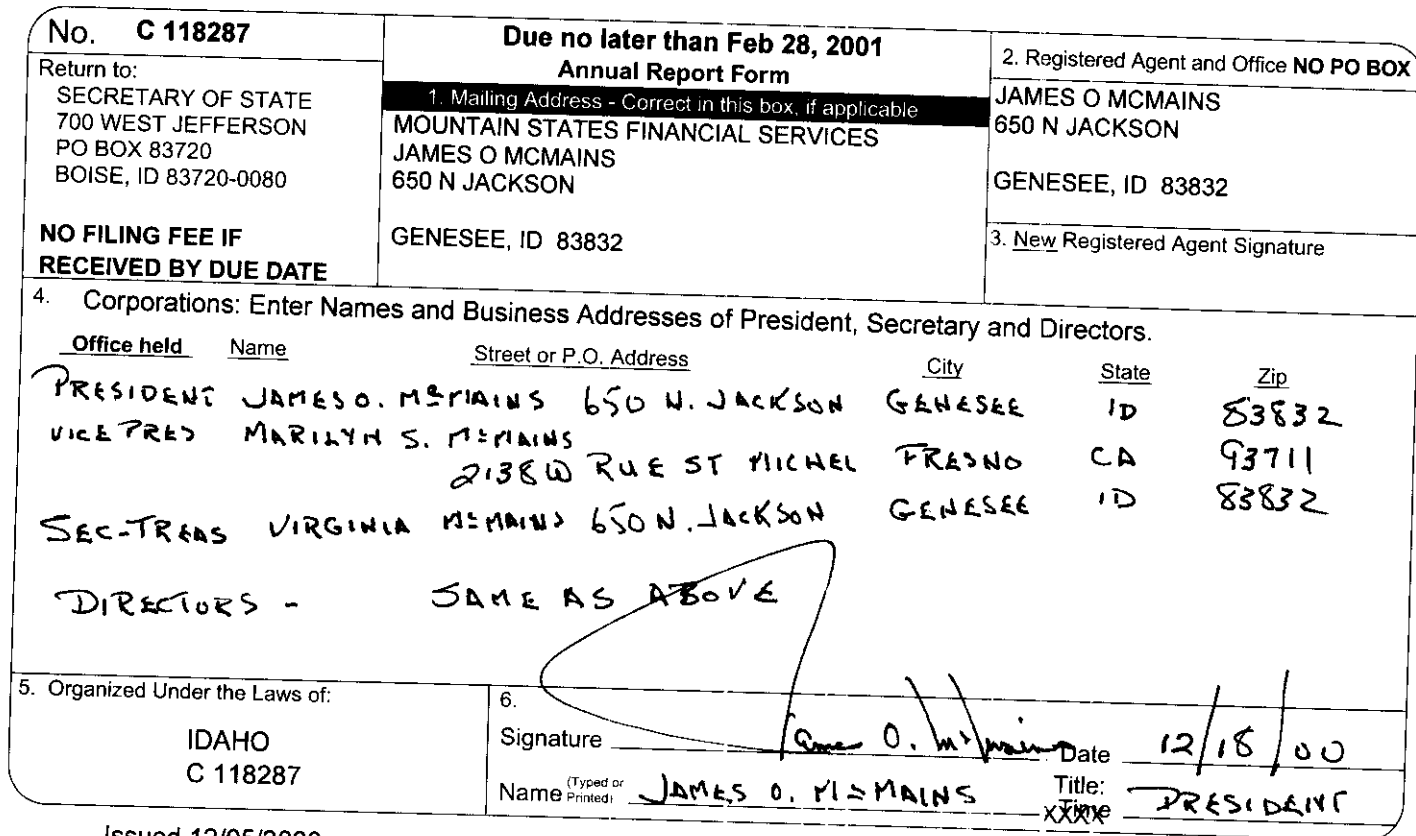 No. C 118287
Return to:
SECRETARY OF STATE
700 WEST JEFFERSON
PO BOX 83720
BOISE, ID 83720-0080
NO FILING FEE IF
RECEIVED BY DUE DATE
Due no later than Feb 28, 2001
Annual Report Form
1. Mailing Address - Correct in this box, if applicable
MOUNTAIN STATES FINANCIAL SERVICES
JAMES O MCMAINS
650 N JACKSON
GENESEE, ID 83832
2. Registered Agent and Office NO PO BOX
JAMES O MCMAINS
650 N JACKSON
GENESEE, ID 83832
3. New Registered Agent Signature
4. Corporations: Enter Names and Business Addresses of President, Secretary and Directors.
Office held Name Street or P.O. Address City State Zip
PRESIDENT JAMES O. McMAINS 650 N. JACKSON GENESEE ID 83832
VICE PRES MARILYN S. McMAINS
2138 W RUE ST MICHEL FRESNO CA 93711
SEC-TREAS VIRGINIA McMAINS 650 N. JACKSON GENESEE ID 83832
DIRECTORS - SAME AS ABOVE
5. Organized Under the Laws of:
IDAHO
C 118287
6.
Signature James O. McMains Date 12/18/00
Name (Typed or Printed) JAMES O. McMAINS Title: PRESIDENT
Issued 12/05/2000